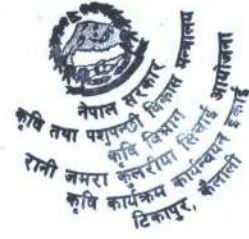 नेपाल सरकार
कृषि तथा पशुपन्छी विकास मन्त्रालय
कृषि विभाग
रानी जमरा कुलरीया सिंचाई आयोजना
कृषि कार्यक्रम कार्यन्वयन इकाई
टिकापुर, कैलाली